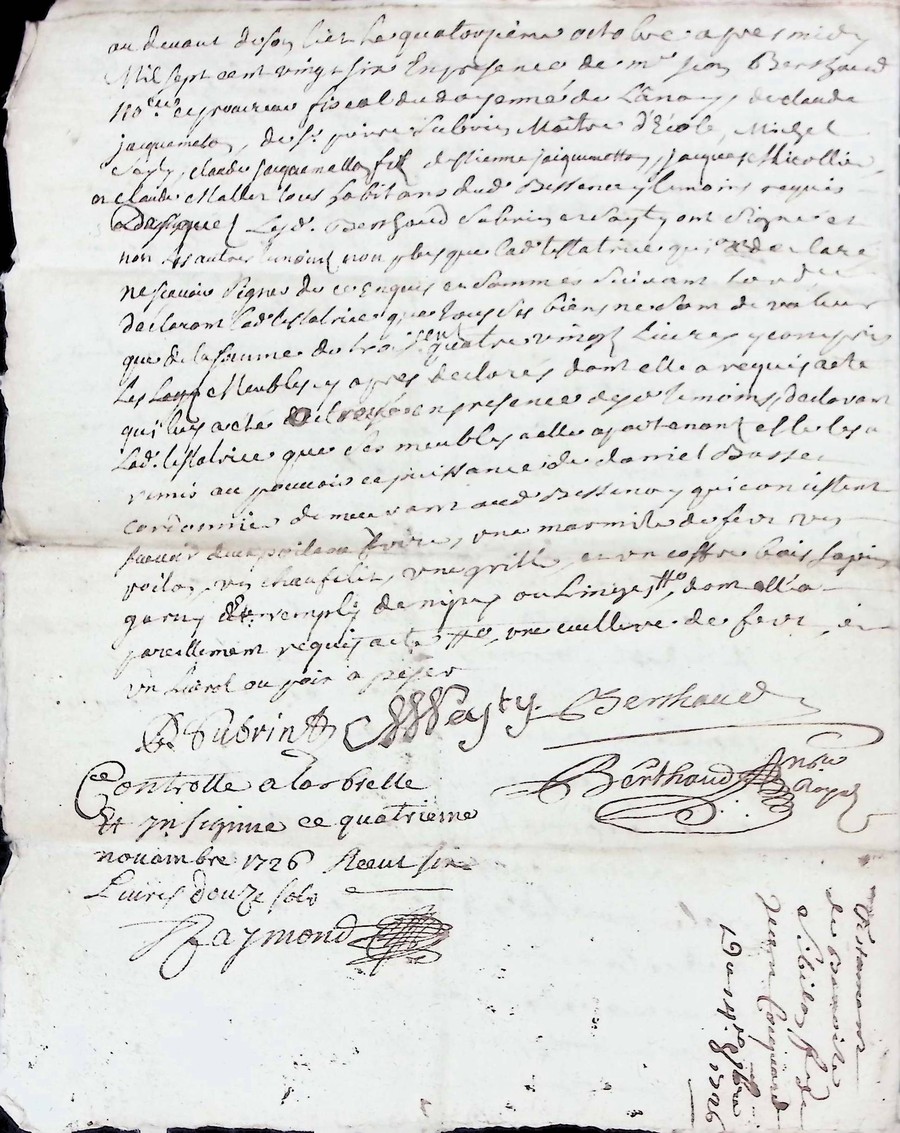 au devant de son lict le quatorzieme octobre apres midy
Mil sept cent vingt six En presence de mre Jean Berthaud
no.re et procureur fiscal du doyenné de de claude
jacquemeton, de sr pierre Subrin Maitre d'Ecole, Michel
Payty, claude jacquemetton fils d'estienne jacquemetton, jacques Nicollier
et claude challer tous habitans dud. Bessenay temoins requis
Les d. Berthaud Subrin et Payty ont signé et
non les autres temoins non plus que lad. testatrice qui a declaré
ne scavoir signer de ce enquis et sommés suivant l'ord.ce
declarant lad. testatrice que tous ses biens ne sont de valeur
que de la somme de trois cent quatre vingt Livres y compris
Les meubles cy apres declarés dont elle a requis acte
qui luy a eté octroyé en presence des d. temoins, declarant
Lad. testatrice que ses meubles a elle apartenant elle les a
remis au pouvoir et puissance de daniel Basset
cordonnier demeurant aud. Bessenay qui consistent
deux poiles a frire, une marmite de fert
un chaufelit, une grille, et un coffre bois sapin
garny et remply de nipes ou Linges, dont ell'a
pareillement requis acte, une cuillere de fert, et
un ou poix a peser
P. Subrin Payty Berthaud
Berthaud no.re Royal
Controlle a larbrelle
Et Insignue ce quatrieme
novambre 1726 Receut six
Livres douze sols
Raymond
Testament
de benoite
Sibila fe de
Jean Coquard
Du 14e 8bre
1726